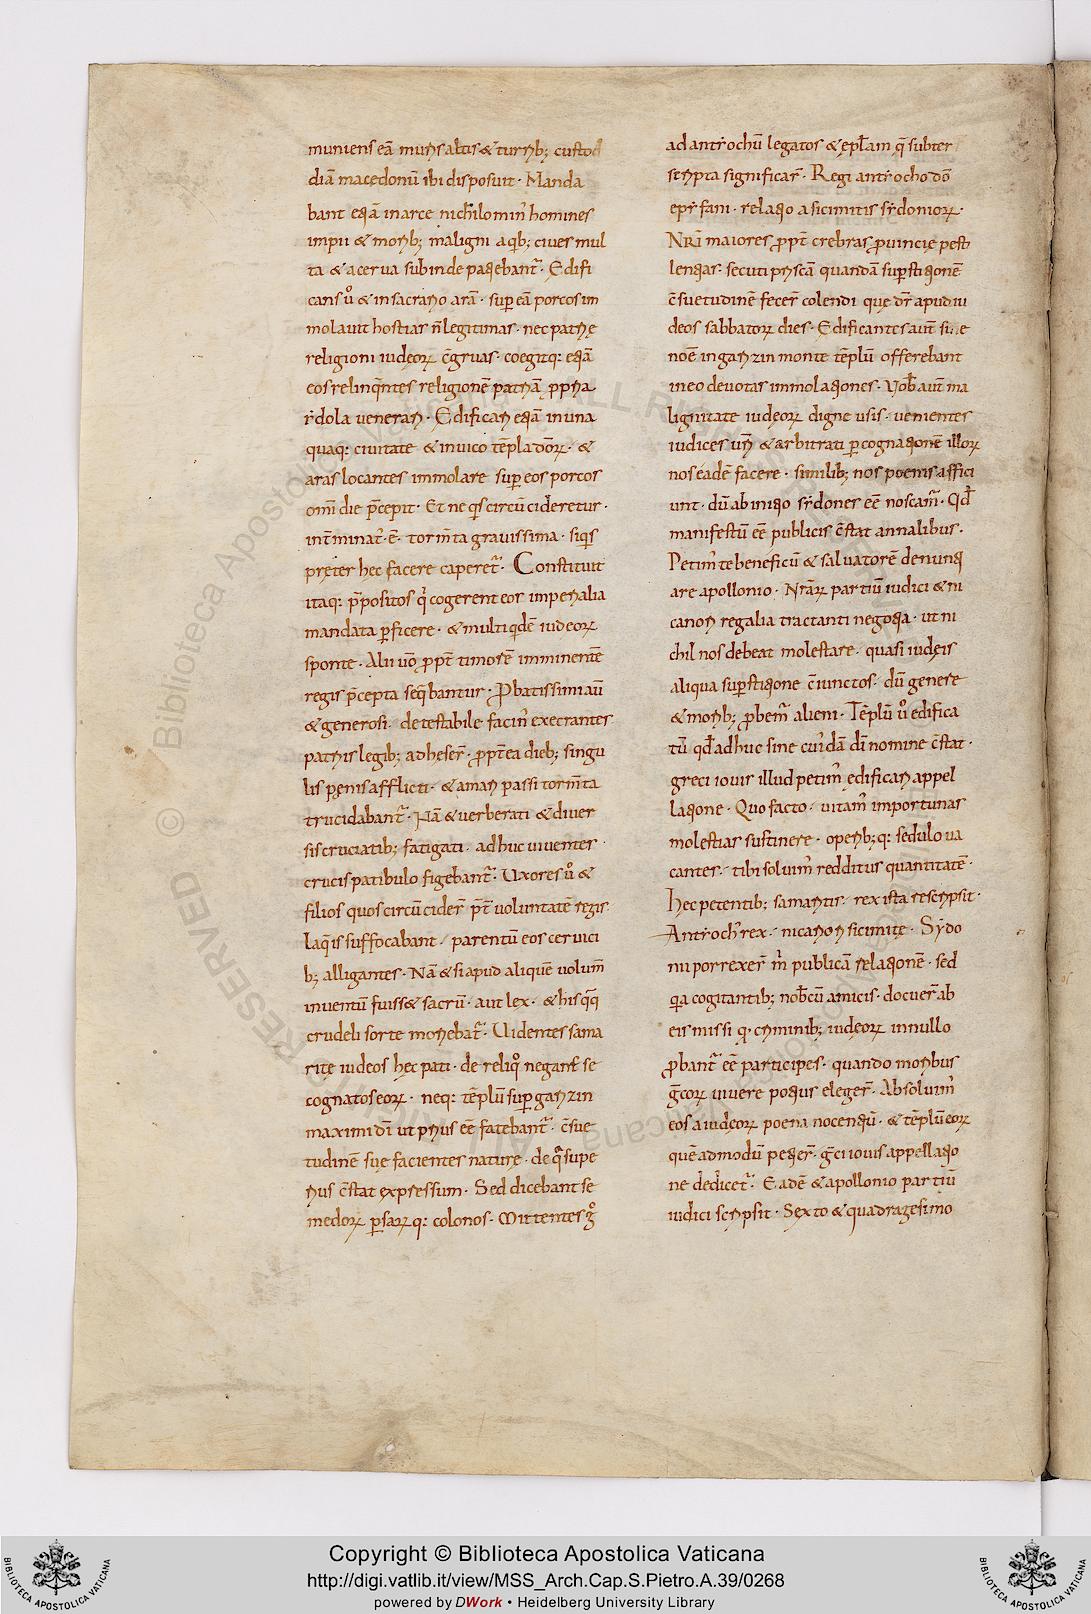 muniens eā muris altis & turrib; custo
diā macedonū ibi disposuit · Manda
bant etiā in arce nichilomin᾽ homines
impii & morib; maligni a qb; cives mul
ta & acerva subinde patiebant᷑ · Edifi
cans ů & in sacrario arā · sup eā porcos im
molavit hostias ñ legitimas · nec patrie
religioni iudęoꝝ c̄gruas · coegitq: etiā
eos relinq̄ntes religionē patriā ꝓpria
ydola venerari · Edificari etiā in una
quaq: civitate & in vico tēpla dōꝝ · &
aras locantes immolare sup eos porcos
omī die p̄cepit · Et ne qs circūcideretur ·
int̄minat᷑ · ē · torm̄ta gravissima · siqs
pręter hec facere caperet᷑ · Constituit
itaq: p̄positos q̇ cogerent eor imperialia
mandata p̱ficere · & multi qdē iudeoꝝ
sponte · Alii ůo ꝓpt̄ timorē imminentē
regis p̄cepta seq̄bantur · Pbatissimi aū
& generosi · detestabile facin᾽ execrantes
patriis legib; adheser̄ · ꝓpt̄ea dieb; singu
lis pęnis afflicti · & amari passi torm̄ta
trucidabant᷑ · Nā & verberati & diver
sis cruciatib; fatigati · adhuc viventes ·
crucis patibulo figebant᷑ · Uxores ů &
filios quos circūcider̄ p̄t voluntatē regis ·
laqis suffocabant · parentū eos cervici
b; alligantes · Nā & si apud aliquē volum̄
inventū fuiss& sacrū · aut lex · & hi sq̄q̄
crudeli sorte moriebat᷑ · Uidentes sama
ritę iudeos hęc pati · de reliq̊ negant᷑ se
cognatos eoꝝ · neq: tēplū sup garizin
maximi dī ut prius eē fatebant᷑ · c̄sue
tudinē suę facientes naturę · de q̄ supe
rius c̄stat expressum · Sed dicebant se
medoꝝ p̱saꝝq: colonos · Mittentes g̊
ad antiochū legatos & epl̄am q̄ subter
scripta significar̄ · Regi antiocho dō
epyfani · relatio a sicimitis sydonioꝝ ·
Nr̄i maiores ꝓpt̄ crebras ꝓvincię pesti
lentias · secuti priscā quandā sup̱stitionē
c̄suetudinē fecer̄ colendi quę dr̄ apud iu
deos sabbatoꝝ dies · Edificantes aut̄ si e
noīe in garizin monte tēplū offerebant
in eo devotas immolationes · Vob̄ aut̄ ma
lignitate iudęoꝝ digne usis · venientes
iudices vr̄i & arbitrati p̱ cognationē illoꝝ
nos eadē facere · similib; nos poenis affici
unt · dū ab initio sydones eē noscam᷑ · Qd̄
manifestū eē publicis c̄stat annalibus ·
Petim᾽ te beneficū & salvatorē denunti
are apollonio · Nr̄aꝝ partiū iudici & ni
canori regalia tractanti negotia · ut ni
chil nos debeat molestare · quasi iudęis
aliqua sup̱stitione c̄iunctos · dū genere
& morib; ꝓbem᾽ alieni · Tēplū ů edifica
tū qd̄ adhuc sine cui᾽dā dī nomine c̄stat ·
greci iovis illud petim᾽ edificari appel
latione · Quo facto · vitam᾽ importunas
molestias sustinere · operib; q: sedulo va
cantes · tibi solvim᾽ redditus quantitatē ·
Hęc petentib; samaritis · rex ista rescripsit ·
Antioch᾽ rex · nicanori sicimite · Sydo
nii porrexer̄ m̄ publicā relationē · sed
q̇a cogitantib; nob̄cū amicis · docuer̄ ab
eis missi q̇ · criminib; iudęoꝝ in nullo
ꝓbant᷑ eē participes · quando moribus
g̊coꝝ vivere potius eleger̄ · Absolvim᾽
eos a iudęoꝝ poena nocentiū · & tēplū eoꝝ
quē admodū petier̄ · g̊ci iovis appellatio
ne dedicet᷑ · Eadē & apollonio partiū
iudici scripsit · Sexto & quadragesimo
Copyright © Biblioteca Apostolica Vaticana
http://digi.vatlib.it/view/MSS_Arch.Cap.S.Pietro.A.39/0268
powered by DWork • Heidelberg University Library